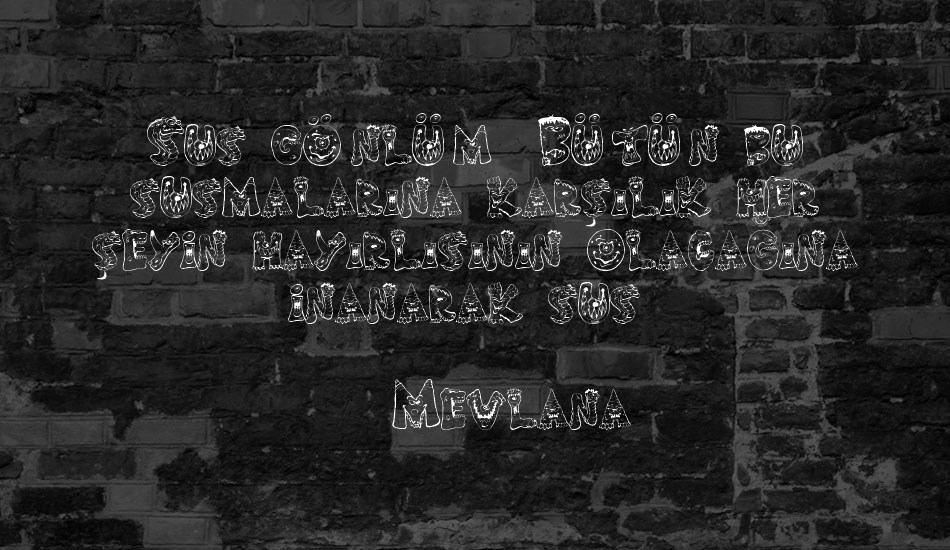 Sus gönlüm Bütün bu
susmalarına karşılık her
şeyin hayırlısının Olacağına
inanarak sus
Mevlana